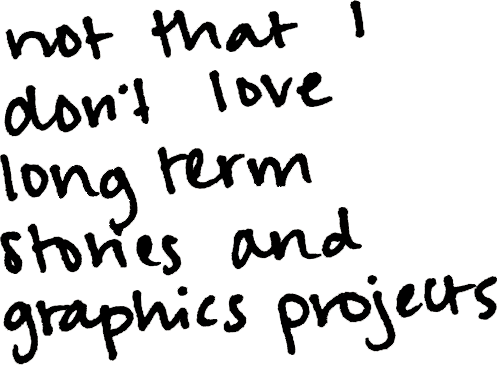 not that I
don't love
long term
stories and
graphics projects